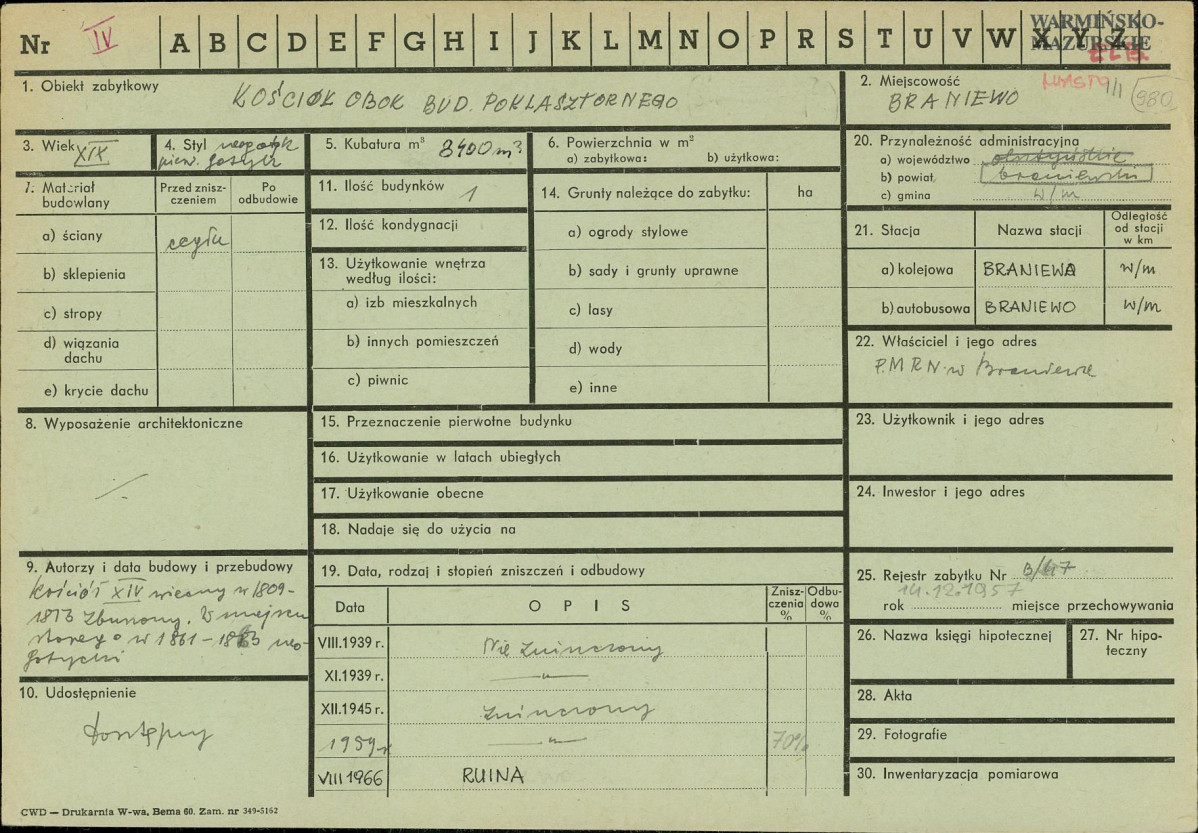 Nr IV A B C D E F G H I J K L M N O P R S T U V W X Y Z
WARMIŃSKO-
MAZURSKIE
1. Obiekt zabytkowy
KOŚCIÓŁ OBOK BUD. POKLASZTORNEGO
2. Miejscowość
BRANIEWO
MIASTO
980
3. Wiek XIX
4. Styl neogotyk
pierw. gotyck
5. Kubatura m³ 8400 m³
6. Powierzchnia w m²
a) zabytkowa: b) użytkowa:
7. Materiał budowlany
Przed zniszczeniem
Po odbudowie
a) ściany cegła
b) sklepienia
c) stropy
d) wiązania dachu
e) krycie dachu
8. Wyposażenie architektoniczne
9. Autorzy i data budowy i przebudowy
kościół XIV wieczny w 1809-
1813 zburzony. W miejscu
starego w 1861-1863 neo-
gotycki
10. Udostępnienie
dostępny
11. Ilość budynków 1
12. Ilość kondygnacji
13. Użytkowanie wnętrza
według ilości:
a) izb mieszkalnych
b) innych pomieszczeń
c) piwnic
14. Grunty należące do zabytku: ha
a) ogrody stylowe
b) sady i grunty uprawne
c) lasy
d) wody
e) inne
15. Przeznaczenie pierwotne budynku
16. Użytkowanie w latach ubiegłych
17. Użytkowanie obecne
18. Nadaje się do użycia na
19. Data, rodzaj i stopień zniszczeń i odbudowy
Data OPIS Zniszczenia % Odbudowa %
VIII.1939 r. Nie zniszczony
XI.1939 r. —„—
XII.1945 r. zniszczony
1959 r —„— 70%
VIII 1966 RUINA
20. Przynależność administracyjna
a) województwo olsztyńskie
b) powiat braniewski
c) gmina w/m
21. Stacja Nazwa stacji Odległość od stacji w km
a) kolejowa BRANIEWA w/m
b) autobusowa BRANIEWO w/m
22. Właściciel i jego adres
P.M.R.N. w Braniewie
23. Użytkownik i jego adres
24. Inwestor i jego adres
25. Rejestr zabytku Nr B/47
14.12.1957
rok miejsce przechowywania
26. Nazwa księgi hipotecznej
27. Nr hipoteczny
28. Akta
29. Fotografie
30. Inwentaryzacja pomiarowa
CWD — Drukarnia W-wa, Bema 60. Zam. nr 349-5162